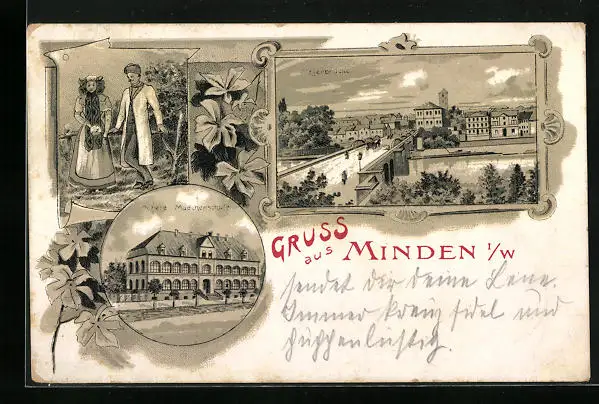 Weserbrücke
Höhere Mädchenschule
GRUSS
aus MINDEN i/W
sendet dir deine Lene.
Immer kreuzfidel und